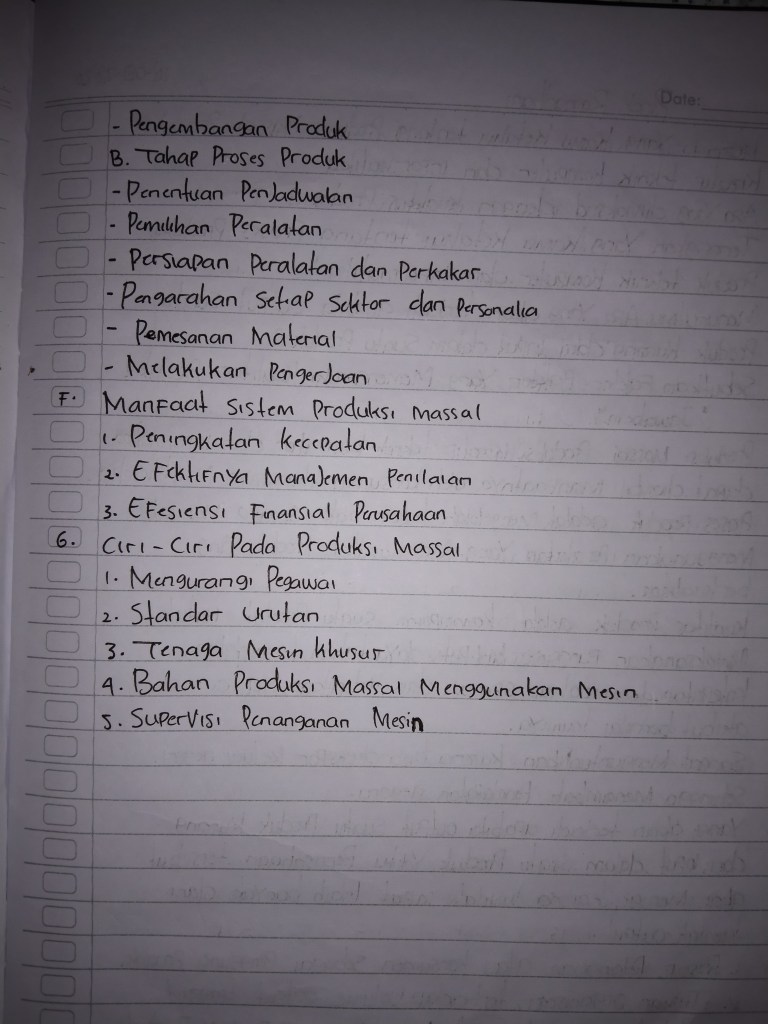 Date:
- Pengembangan Produk
B. Tahap Proses Produk
- Penentuan Penjadwalan
- Pemilihan Peralatan
- Persiapan Peralatan dan Perkakar
- Pengarahan Setiap Sektor dan Personalia
- Pemesanan Material
- Melakukan Pengerjaan
F. Manfaat Sistem Produksi Massal
1. Peningkatan kecepatan
2. Efektifnya Manajemen Penilaian
3. Efesiensi Finansial Perusahaan
G. Ciri-Ciri Pada Produksi Massal
1. Mengurangi Pegawai
2. Standar Urutan
3. Tenaga Mesin khusus
4. Bahan Produksi Massal Menggunakan Mesin
5. Supervisi Penanganan Mesin